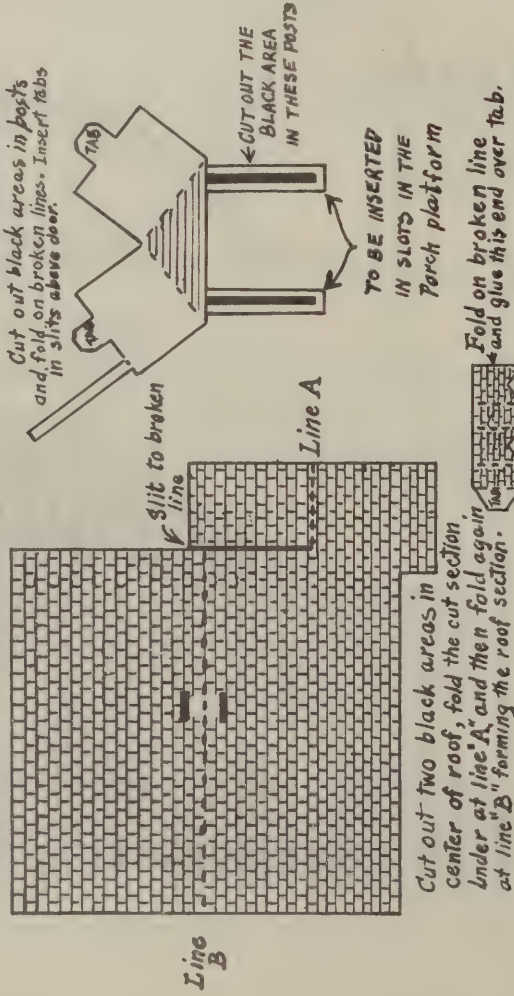 Cut out black areas in posts
and fold on broken lines. Insert tabs
in slits above door.
TAB
TAB
←CUT OUT THE
BLACK AREA
IN THESE POSTS
TO BE INSERTED
IN SLOTS IN THE
Porch platform
Slit to broken
line
Line A
Line
B
Cut out two black areas in
center of roof, fold the cut section
under at line "A" and then fold again
at line "B" forming the roof section.
TAB
Fold on broken line
and glue this end over tab.